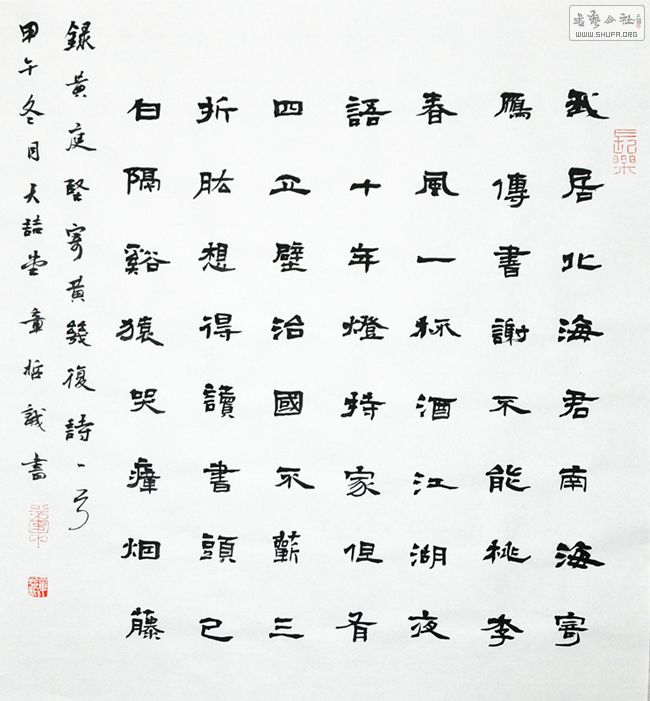 我居北海君南海寄
鴈傳書謝不能桃李
春風一杯酒江湖夜
語十年燈持家但有
四立壁治國不蘄三
折肱想得讀書頭已
白隔谿猿哭瘴烟藤
錄黃庭堅寄黃幾復詩一首
甲午冬月天喆堂章誠書
書藝公社
WWW.SHUFA.ORG